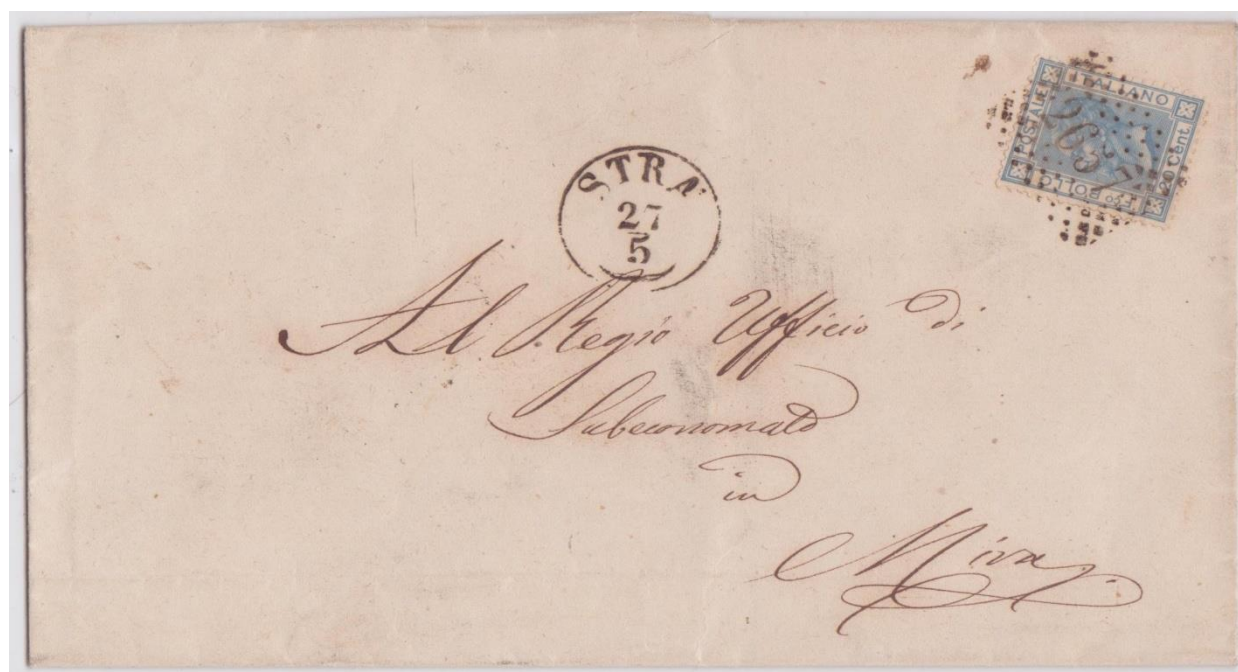 STRA
27
5
POSTALE ITALIANO
FCO BOLLO
20 Cent.
Al Regio Ufficio di
Subeconomato
in
Mira